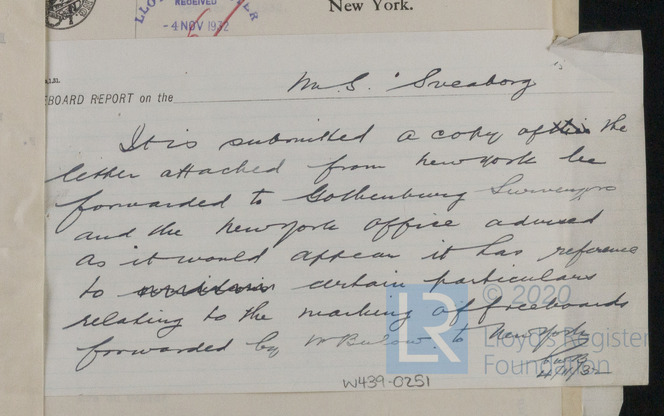 RECEIVED
-4 NOV 1932
New York.
BOARD REPORT on the M.S. "Sveaborg
It is submitted a copy of this the
letter attached from New York be
forwarded to Gothenburg Surveyors
and the New York office advised
as it would appear it has reference
to certain particulars
relating to the marking of freeboards
forwarded by Mr Bulow to New York
4/11/32
W439-0251
LR
© 2020
Lloyd's Register
Foundation